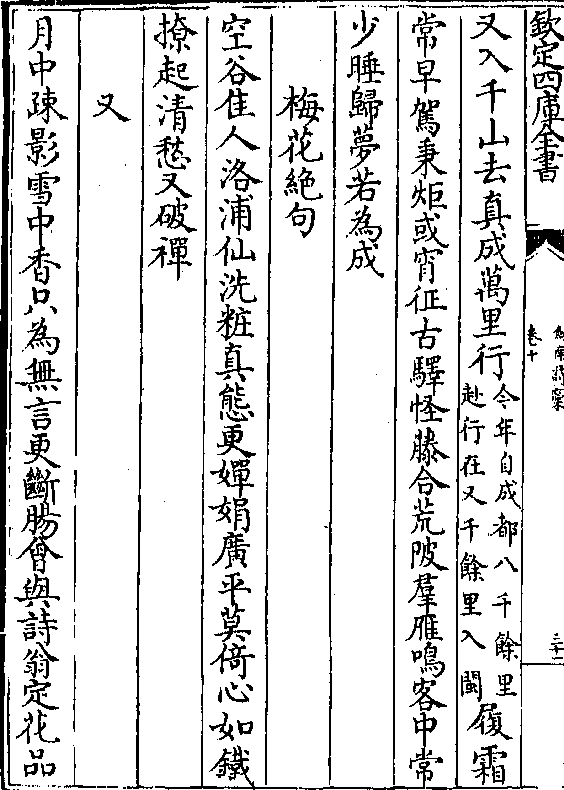 欽定四庫全書
劍南詩稾
卷十
又入千山去真成萬里行
今年自成都八千餘里
赴行在又千餘里入閩
履霜
常早駕秉炬或宵征古驛怪藤合荒陂羣雁鳴客中常
少睡歸夢若為成
梅花絶句
空谷佳人洛浦仙洗粧真態更嬋娟廣平莫倚心如鐵
撩起清愁又破禪
又
月中疎影雪中香只為無言更斷腸曾與詩翁定花品